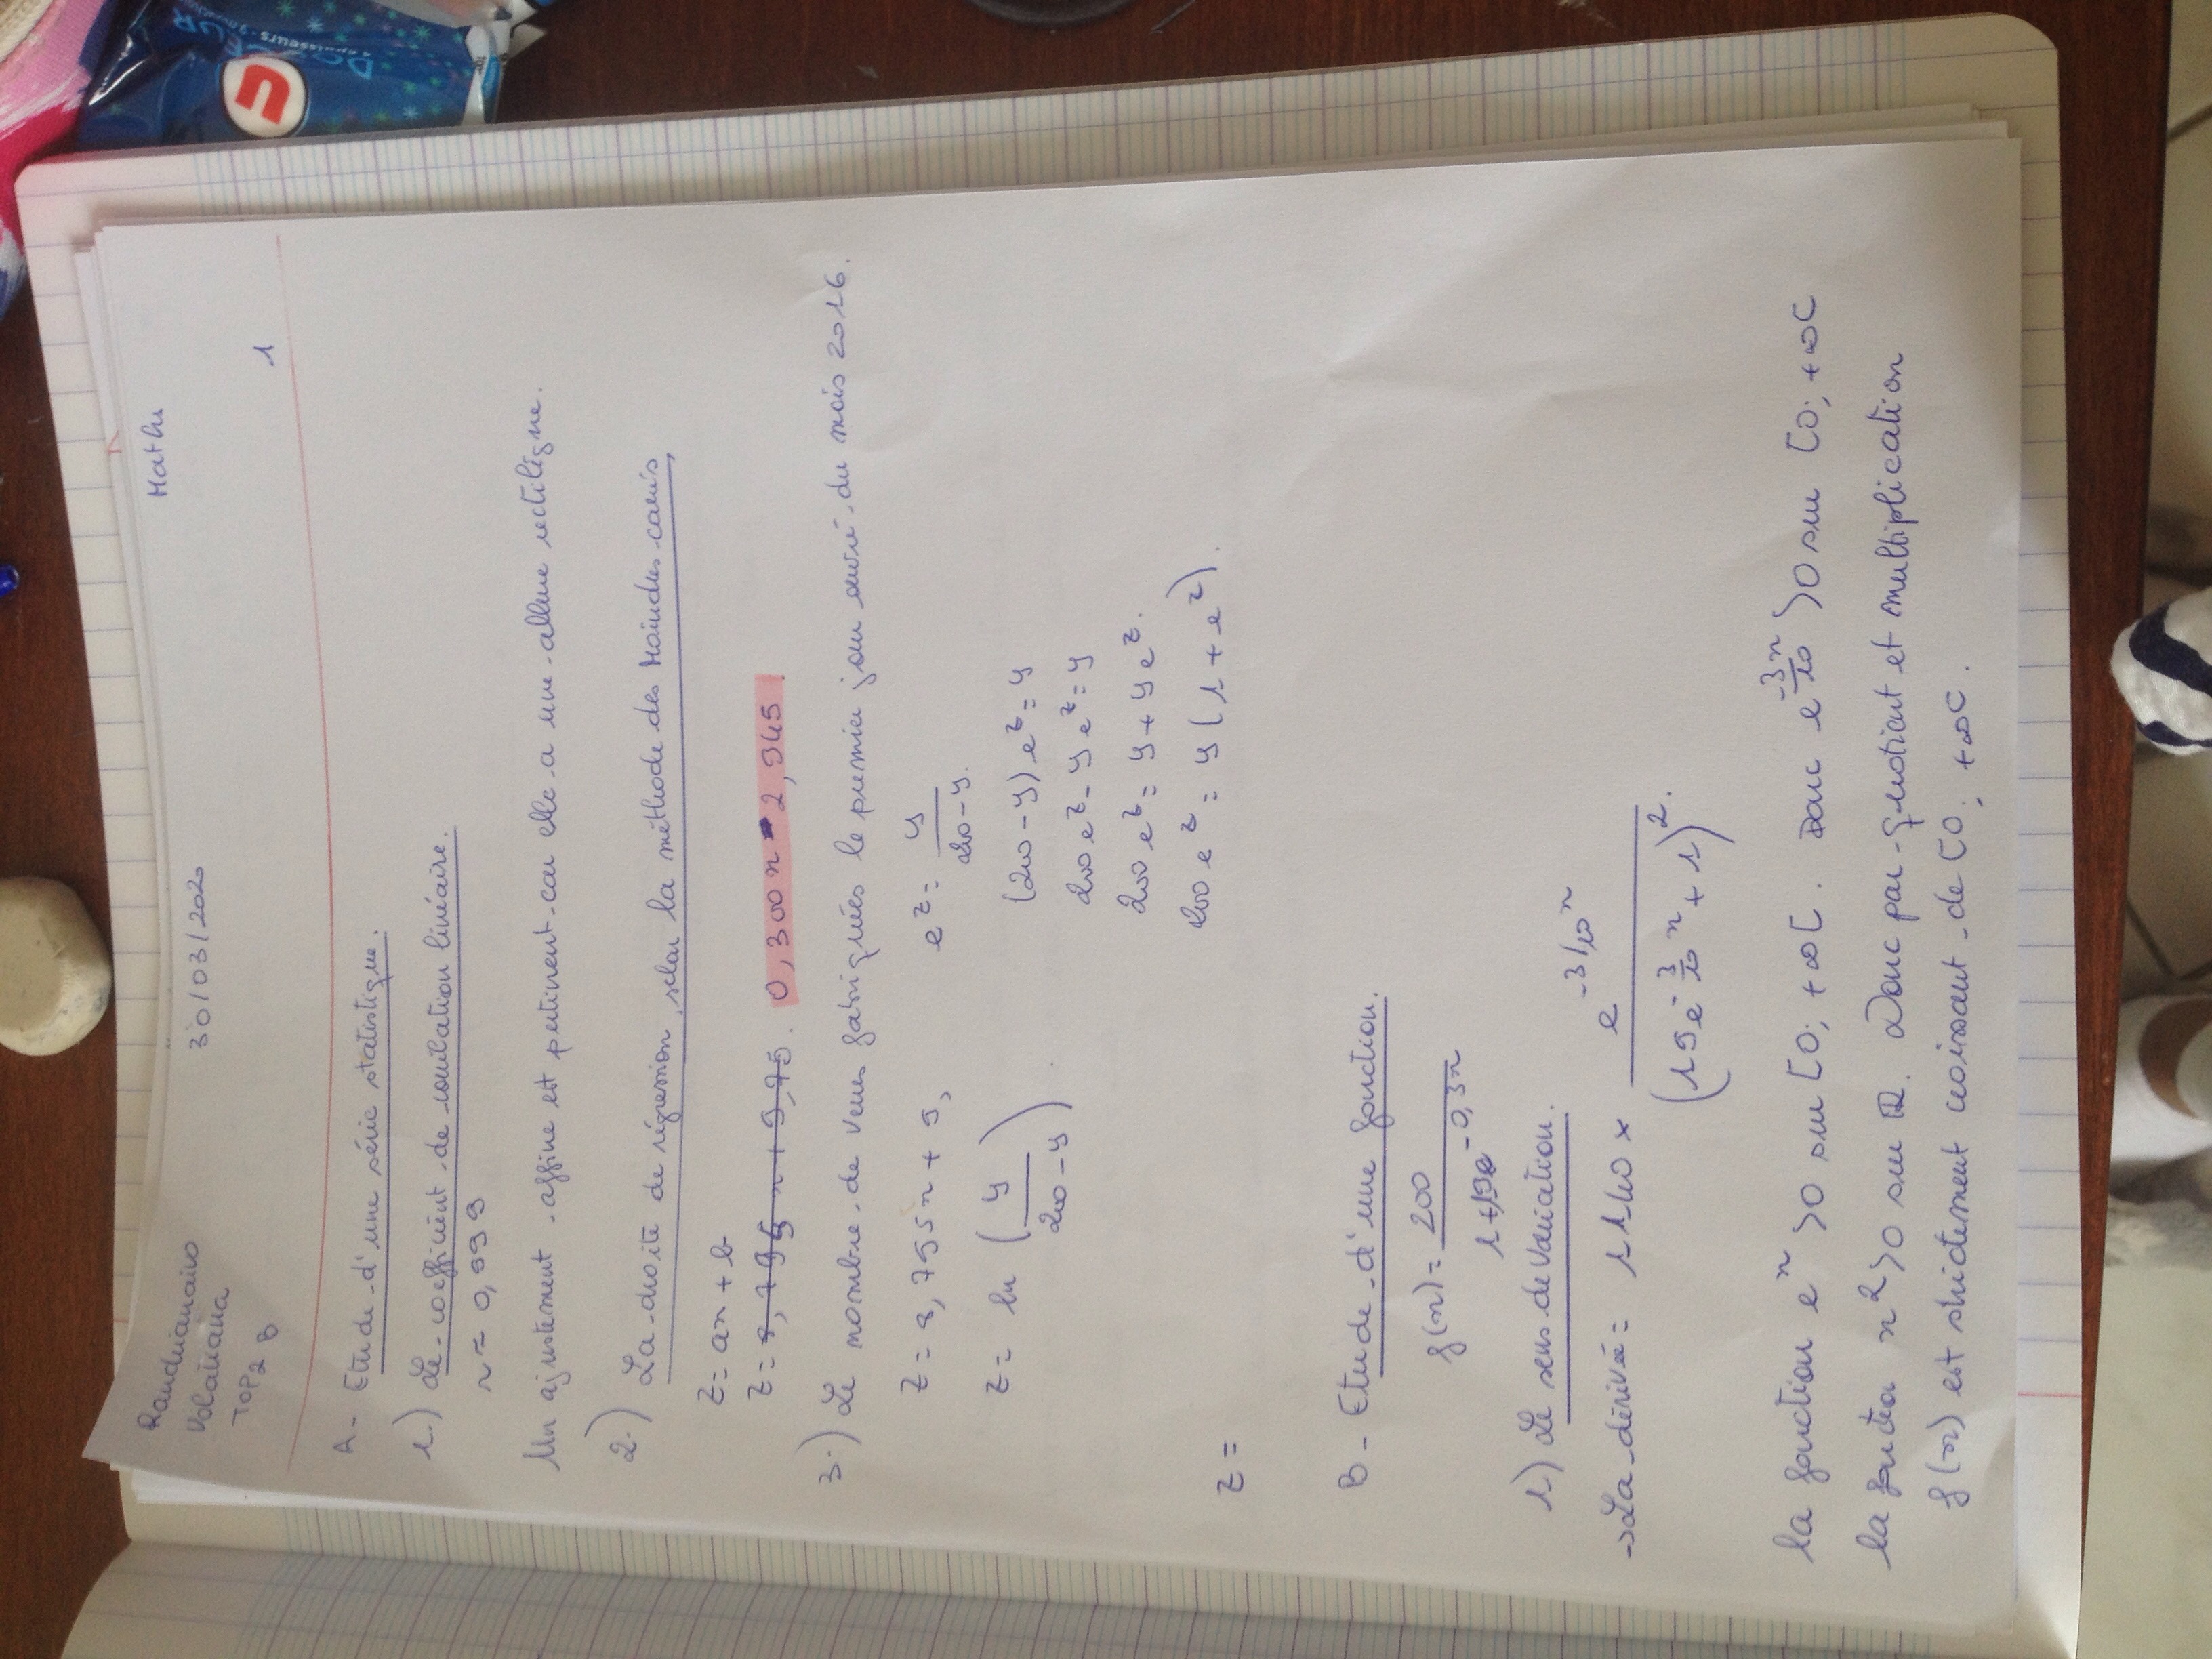 Randrianaivo
Volatiana
TOP2 B
30/03/2020
Maths
1
A - Etude d'une série statistique.
1.) Le coefficient de corrélation linéaire.
r ≈ 0,999
Un ajustement affine est pertinent car elle a une allure rectiligne.
2.) La droite de régression, selon la méthode des Moindres carrés,
Z = ax + b
Z = 8,795 x + 9,75. 0,300 x - 2,945.
3.) Le nombre de verres fabriqués le premier jour ouvré du mois 2016.
Z = 8,795x + 9,
Z = ln (y / (200 - y)).
e^z = y / (200 - y).
(200 - y) e^z = y
200 e^z - y e^z = y
200 e^z = y + y e^z.
200 e^z = y (1 + e^z).
Z =
B - Etude d'une fonction.
f(x) = 200 / (1 + 19e^-0,3x)
1) Le sens de Variation.
→ La dérivée = 1140 × e^(-3/10 x) / (19e^(-3/10 x) + 1)^2.
la fonction e^x > 0 sur [0; +∞[. Donc e^(-3x/10) > 0 sur [0; +∞[
la fonction x^2 > 0 sur ℝ. Donc par quotient et multiplication
f(x) est strictement croissant de [0; +∞[.
U
DOUCEUR
épaisseurs - 9 mouchoirs